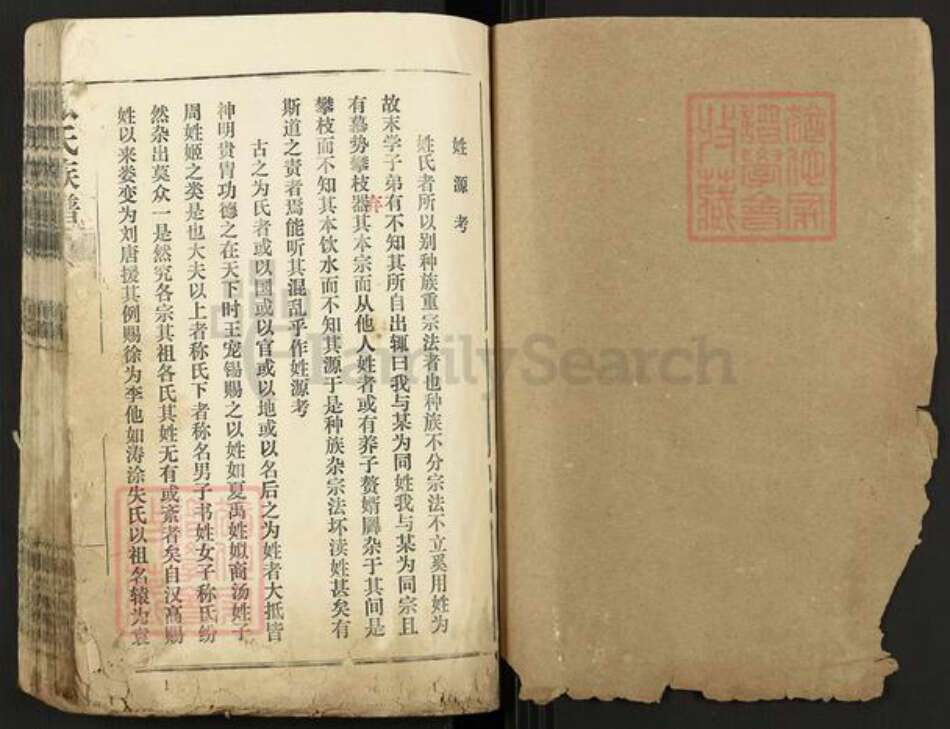 姓源考
姓氏者所以别种族重宗法者也种族不分宗法不立奚用姓为
故末学子弟有不知其所自出辄曰我与某为同姓我与某为同宗且
有慕势攀枝器其本宗而从他人姓者或有养子赘婿羼杂于其间是
攀枝而不知其本饮水而不知其源于是种族杂宗法坏渎姓甚矣有
斯道之责者焉能听其混乱乎作姓源考
古之为氏者或以国或以官或以地或以名后之为姓者大抵皆
神明贵胄功德之在天下时王宠锡赐之以姓如夏禹姓姒商汤姓子
周姓姬之类是也大夫以上者称氏下者称名男子书姓女子称氏纷
然杂出莫众一是然究各宗其祖各氏其姓无有或紊者矣自汉高赐
姓以来娄变为刘唐援其例赐徐为李他如涛涂失氏以祖名辕为袁
氏族谱
FamilySearch